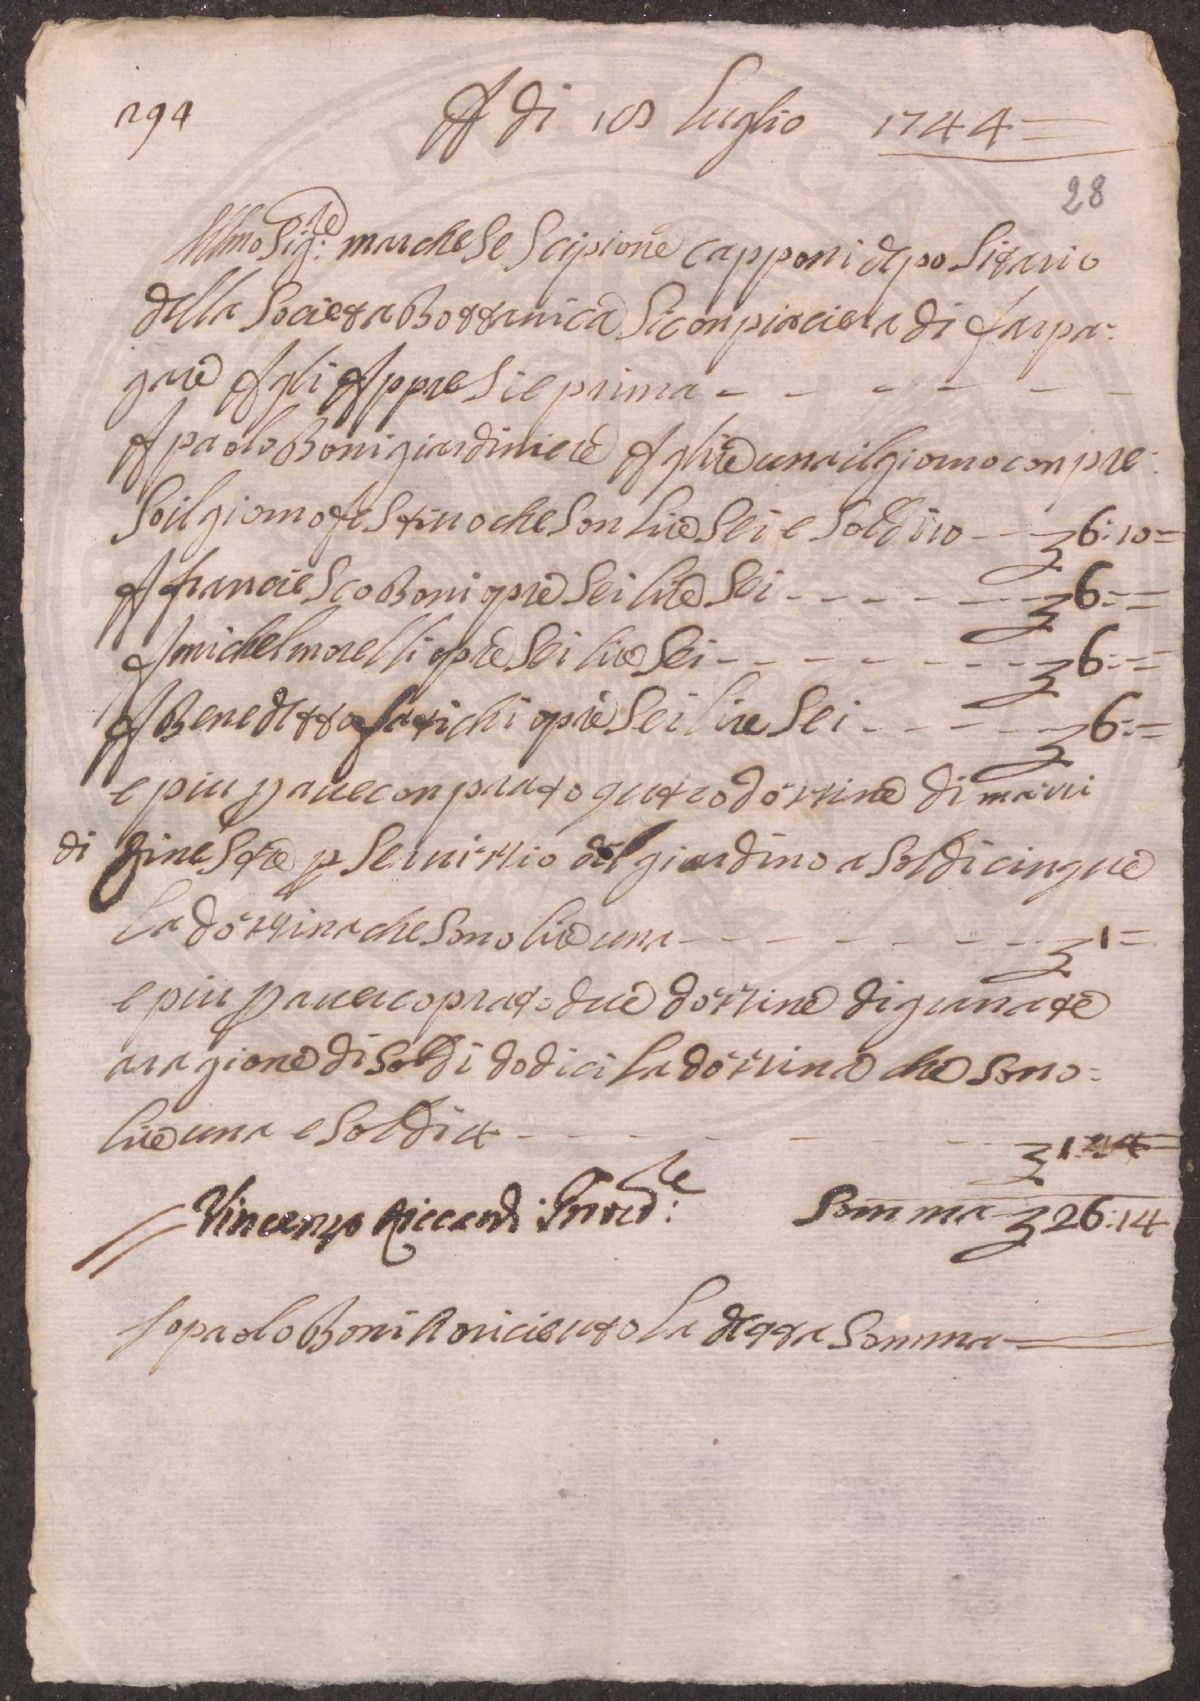 294
A di 18 Luglio 1744
28
Illmo Sig:re marchese Scipione Capponi depositario
della Societta Bottanica Si conpiaciera di far pa=
gare Agli Appresi e prima
A paolo Boni giardiniere A lire una il giorno conpre=
So il giorno festivo che Son lire Sei e Soldi 10 6:10
A franciesco Boni opre Sei lire Sei 6:=
A michel morelli opre Sei lire Sei 6:=
A Benedetto opre Sei lire Sei 6:=
e piu p avere conprato qutro dozzine di mazzi
di Ginestre p Servizzio del giardino a Soldi cinque
la dozzina che Sono lire una 1=
e piu p avere coprato due dozzine di granate
a ragione di Soldi dodici la dozzina che Sono=
lire una e Soldi 4 1:4
Vincenzo Riccardi Provd:re Somma 26:14
Io paolo Boni o ricieuto la detta Somma